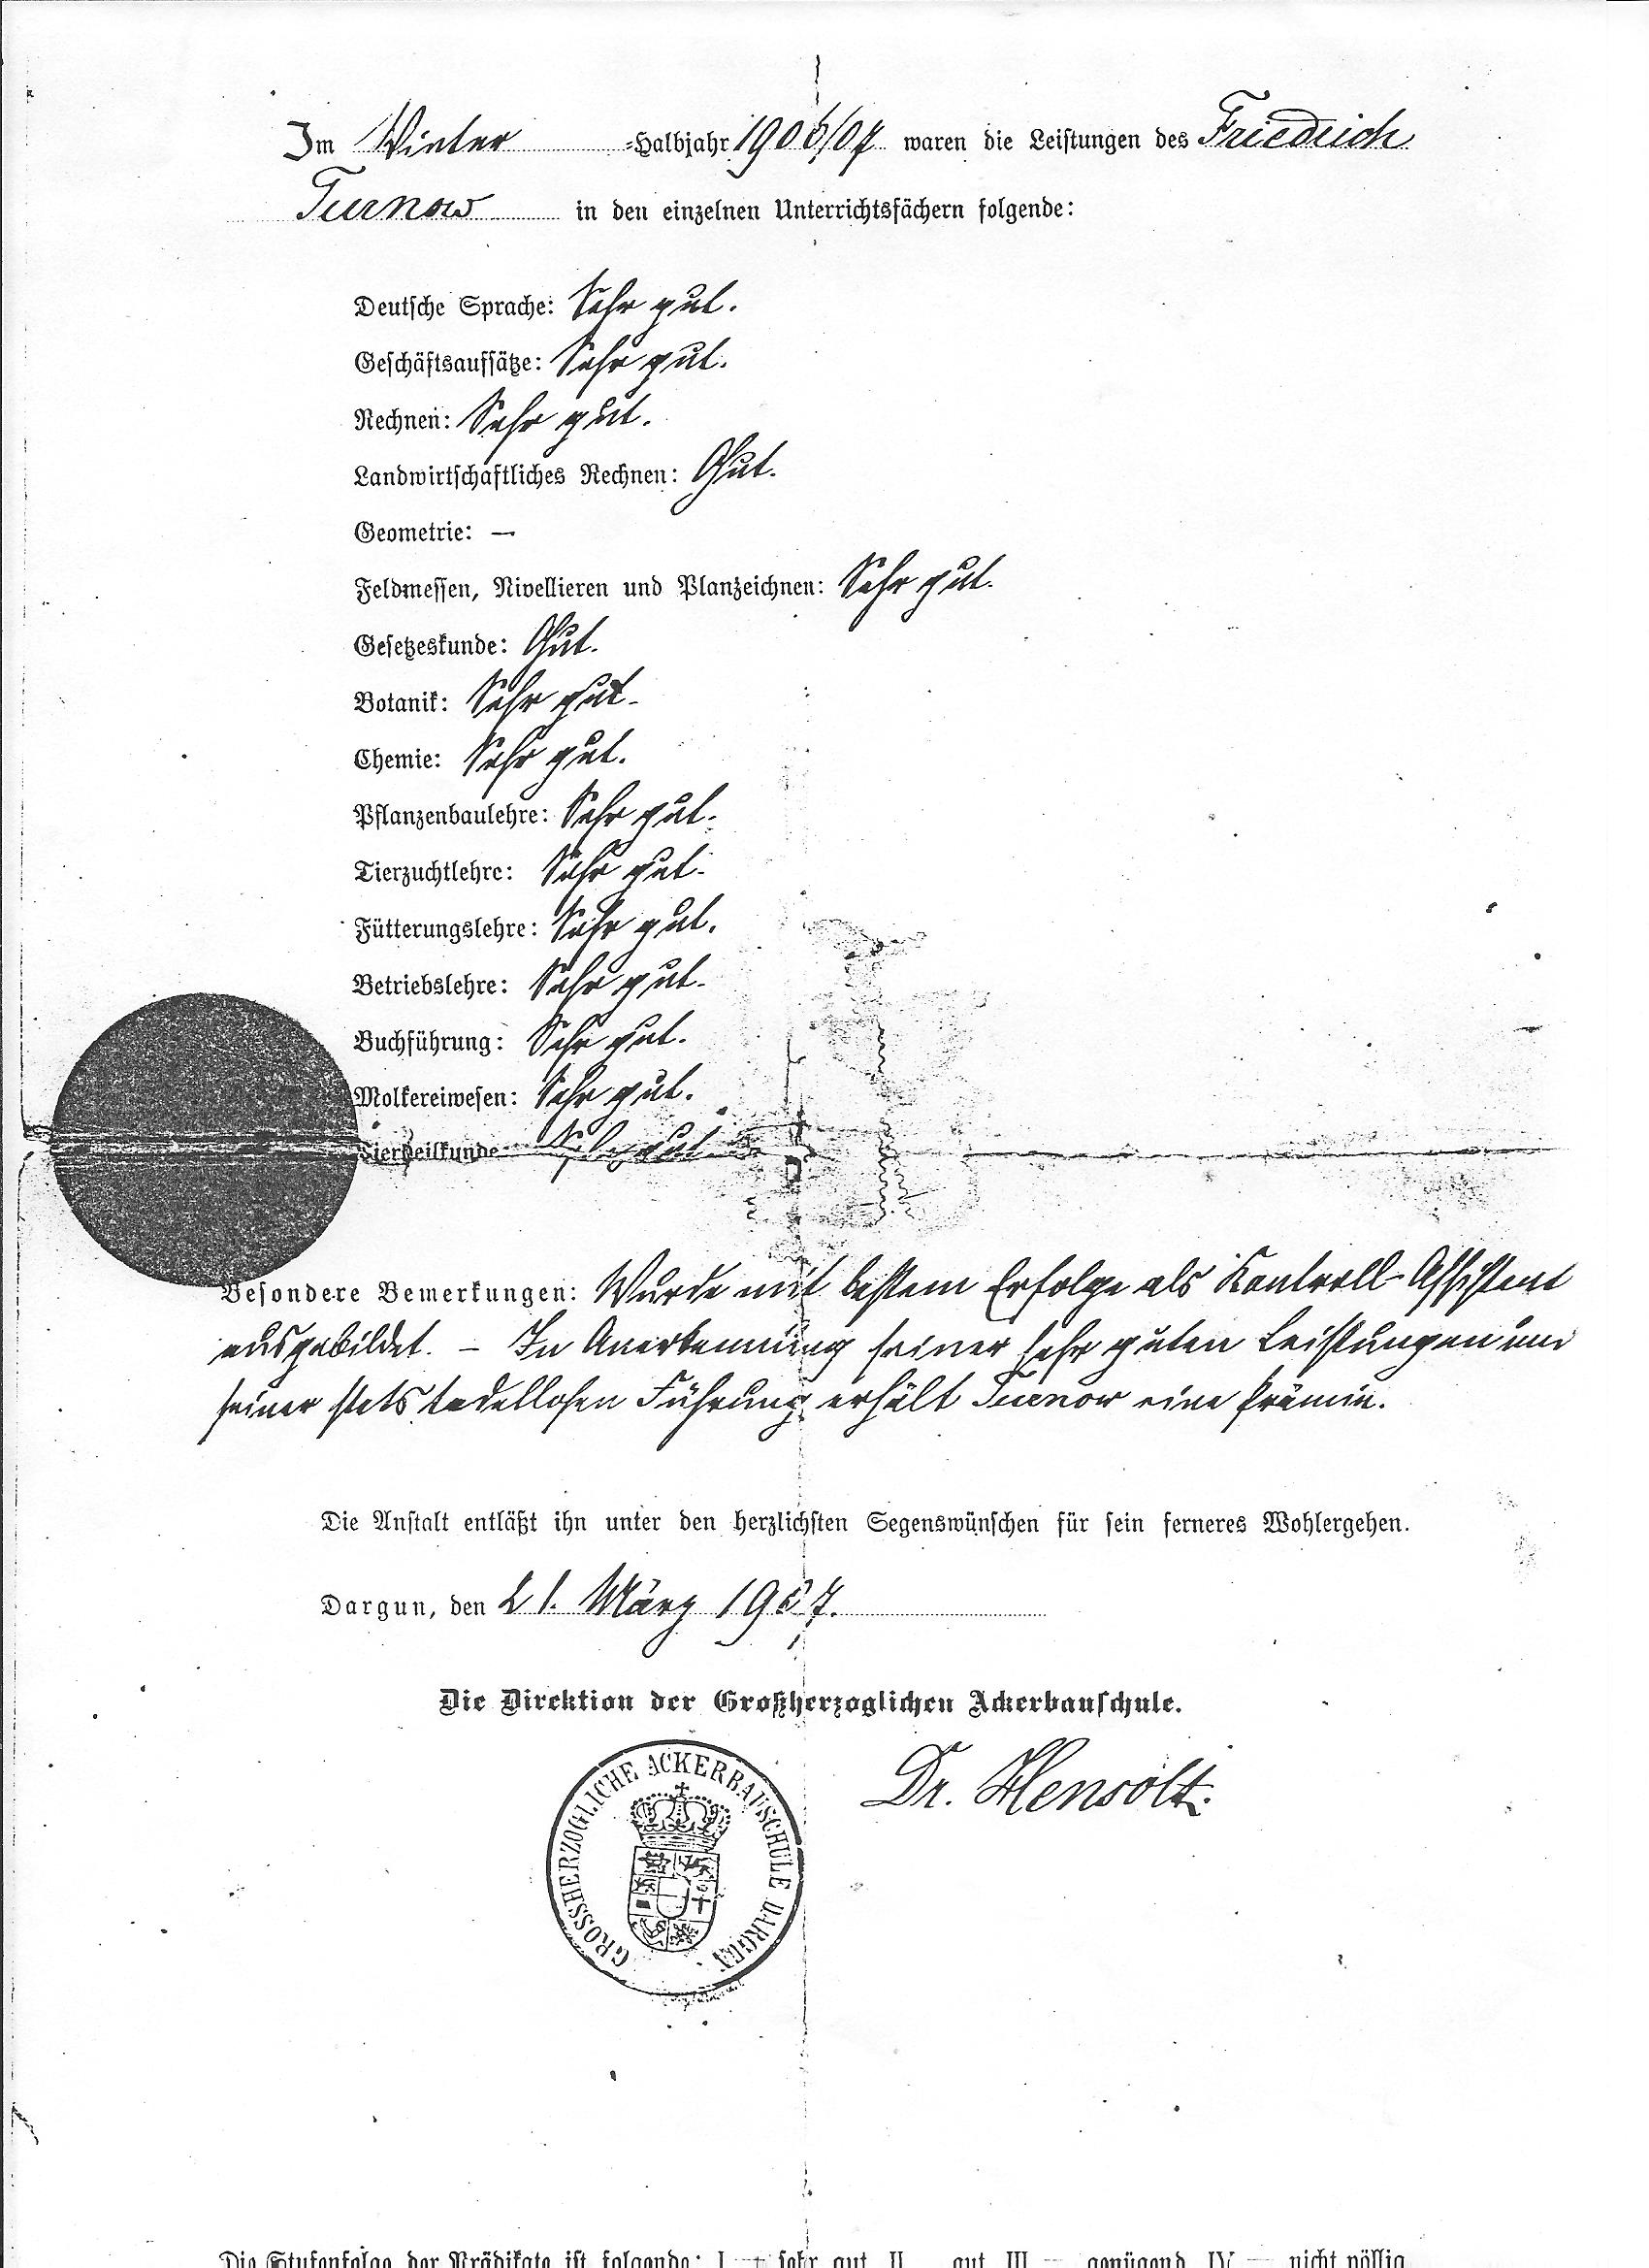 Im Winter -Halbjahr 1906/07 waren die Leistungen des Friedrich
Turnow in den einzelnen Unterrichtsfächern folgende:
Deutsche Sprache: Sehr gut.
Geschäftsaufsätze: Sehr gut.
Rechnen: Sehr gut.
Landwirtschaftliches Rechnen: Gut.
Geometrie: —
Feldmessen, Nivellieren und Planzeichnen: Sehr gut.
Gesetzeskunde: Gut.
Botanik: Sehr gut.
Chemie: Sehr gut.
Pflanzenbaulehre: Sehr gut.
Tierzuchtlehre: Sehr gut.
Fütterungslehre: Sehr gut.
Betriebslehre: Sehr gut.
Buchführung: Sehr gut.
Molkereiwesen: Sehr gut.
Tierheilkunde: Sehr gut
Besondere Bemerkungen: Wurde mit bestem Erfolge als Kontroll-Assistent
ausgebildet. – In Anerkennung seiner sehr guten Leistungen und
seiner stets tadellosen Führung erhält Turnow eine Prämie.
Die Anstalt entläßt ihn unter den herzlichsten Segenswünschen für sein ferneres Wohlergehen.
Dargun, den 21. März 1907.
Die Direktion der Großherzoglichen Ackerbauschule.
GROSSHERZOGLICHE ACKERBAUSCHULE DARGUN
Dr. Hensolt.
Die Stufenfolge der Prädikate ist folgende: I = sehr gut, II = gut, III = genügend, IV = nicht völlig